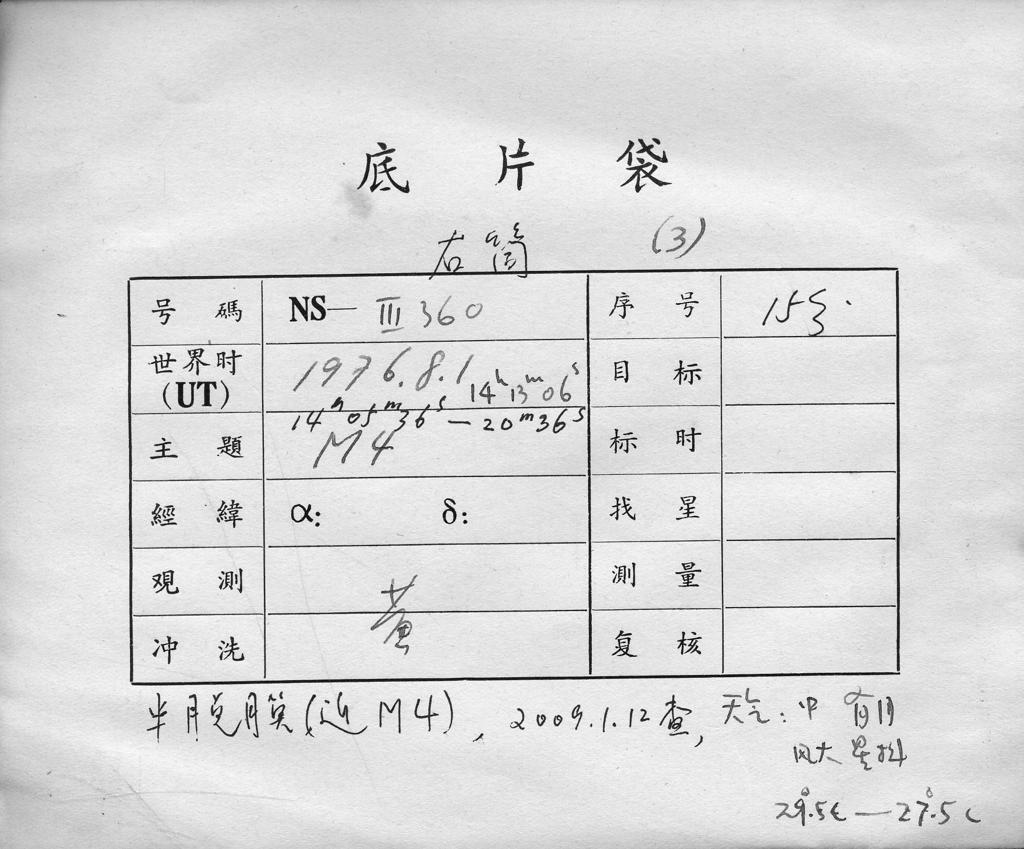 底片袋
右筒 (3)
号碼 NS— III 360 序号 15
世界时 (UT) 1976.8.1 14ʰ13ᵐ06ˢ 目标
14ʰ05ᵐ36ˢ — 20ᵐ36ˢ
主題 M4 标时
經緯 α: δ: 找星
观測 測量
冲洗 黄 复核
半脱膜(近M4), 2009.1.12查, 天气: 中 有月
风大 星抖
29.5℃ — 27.5℃